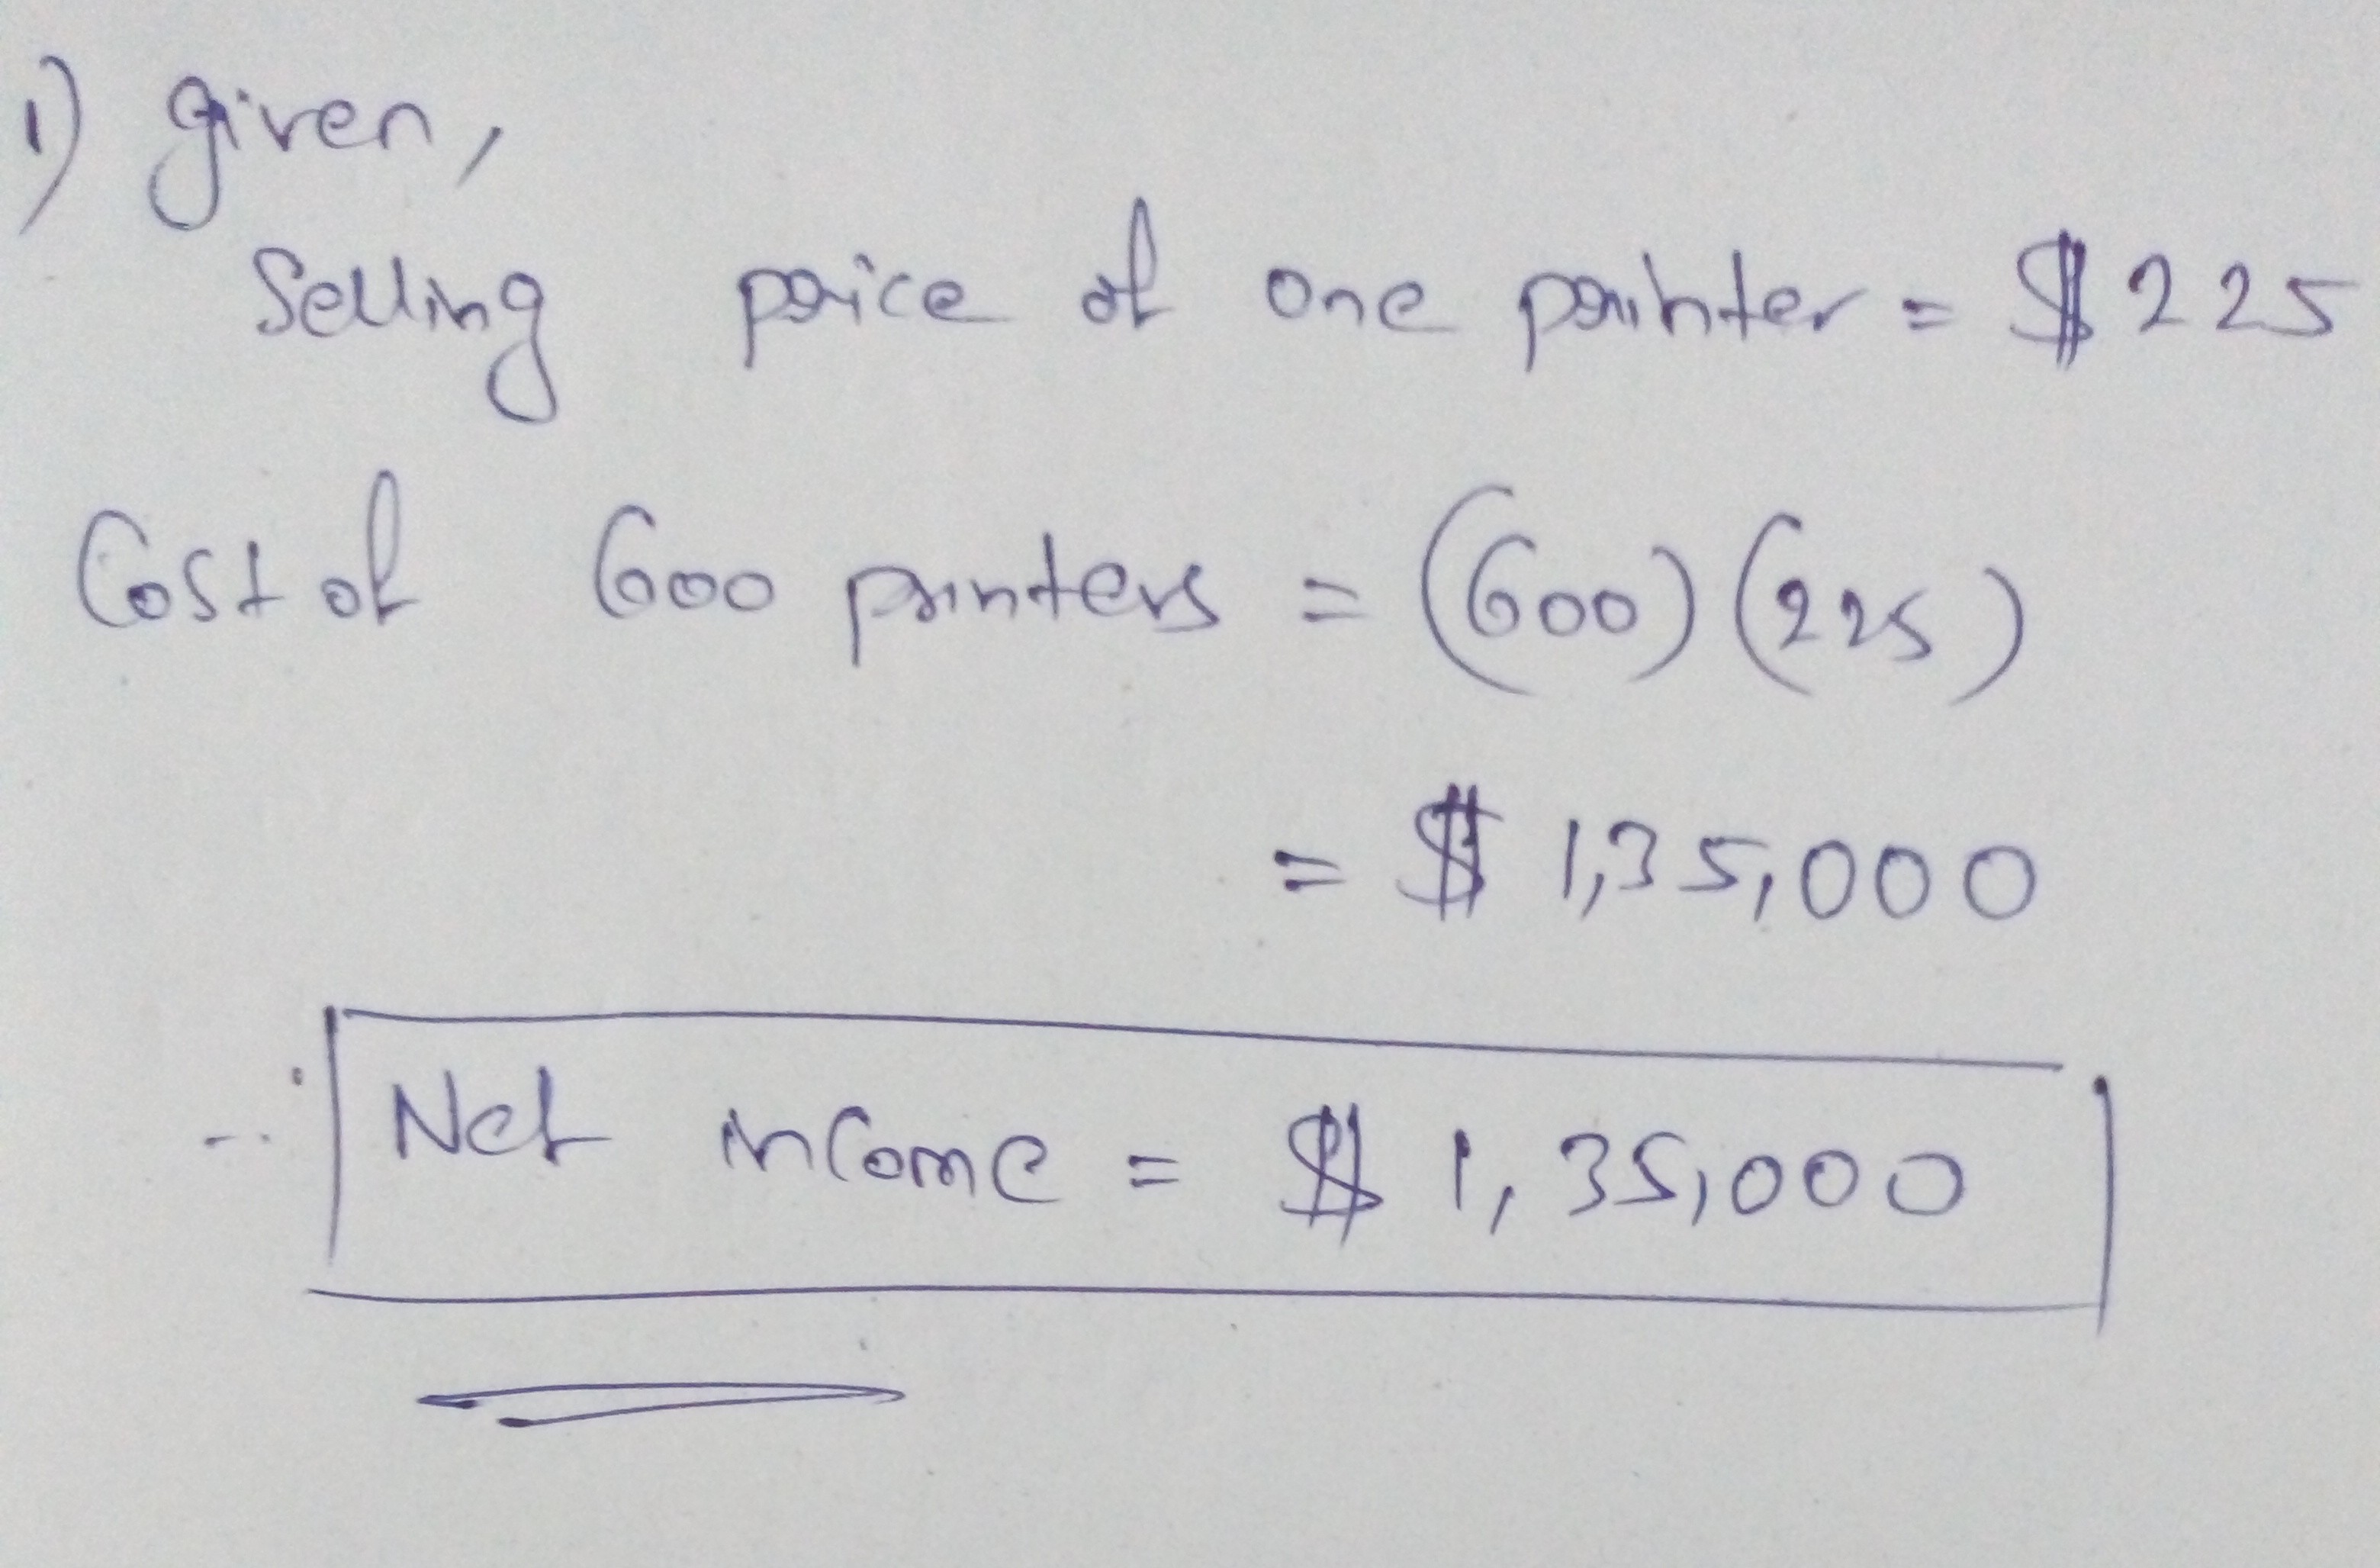 1) given,
Selling price of one printer = $ 225
Cost of 600 printers = (600) (225)
= $ 1,35,000
∴ Net income = $ 1,35,000